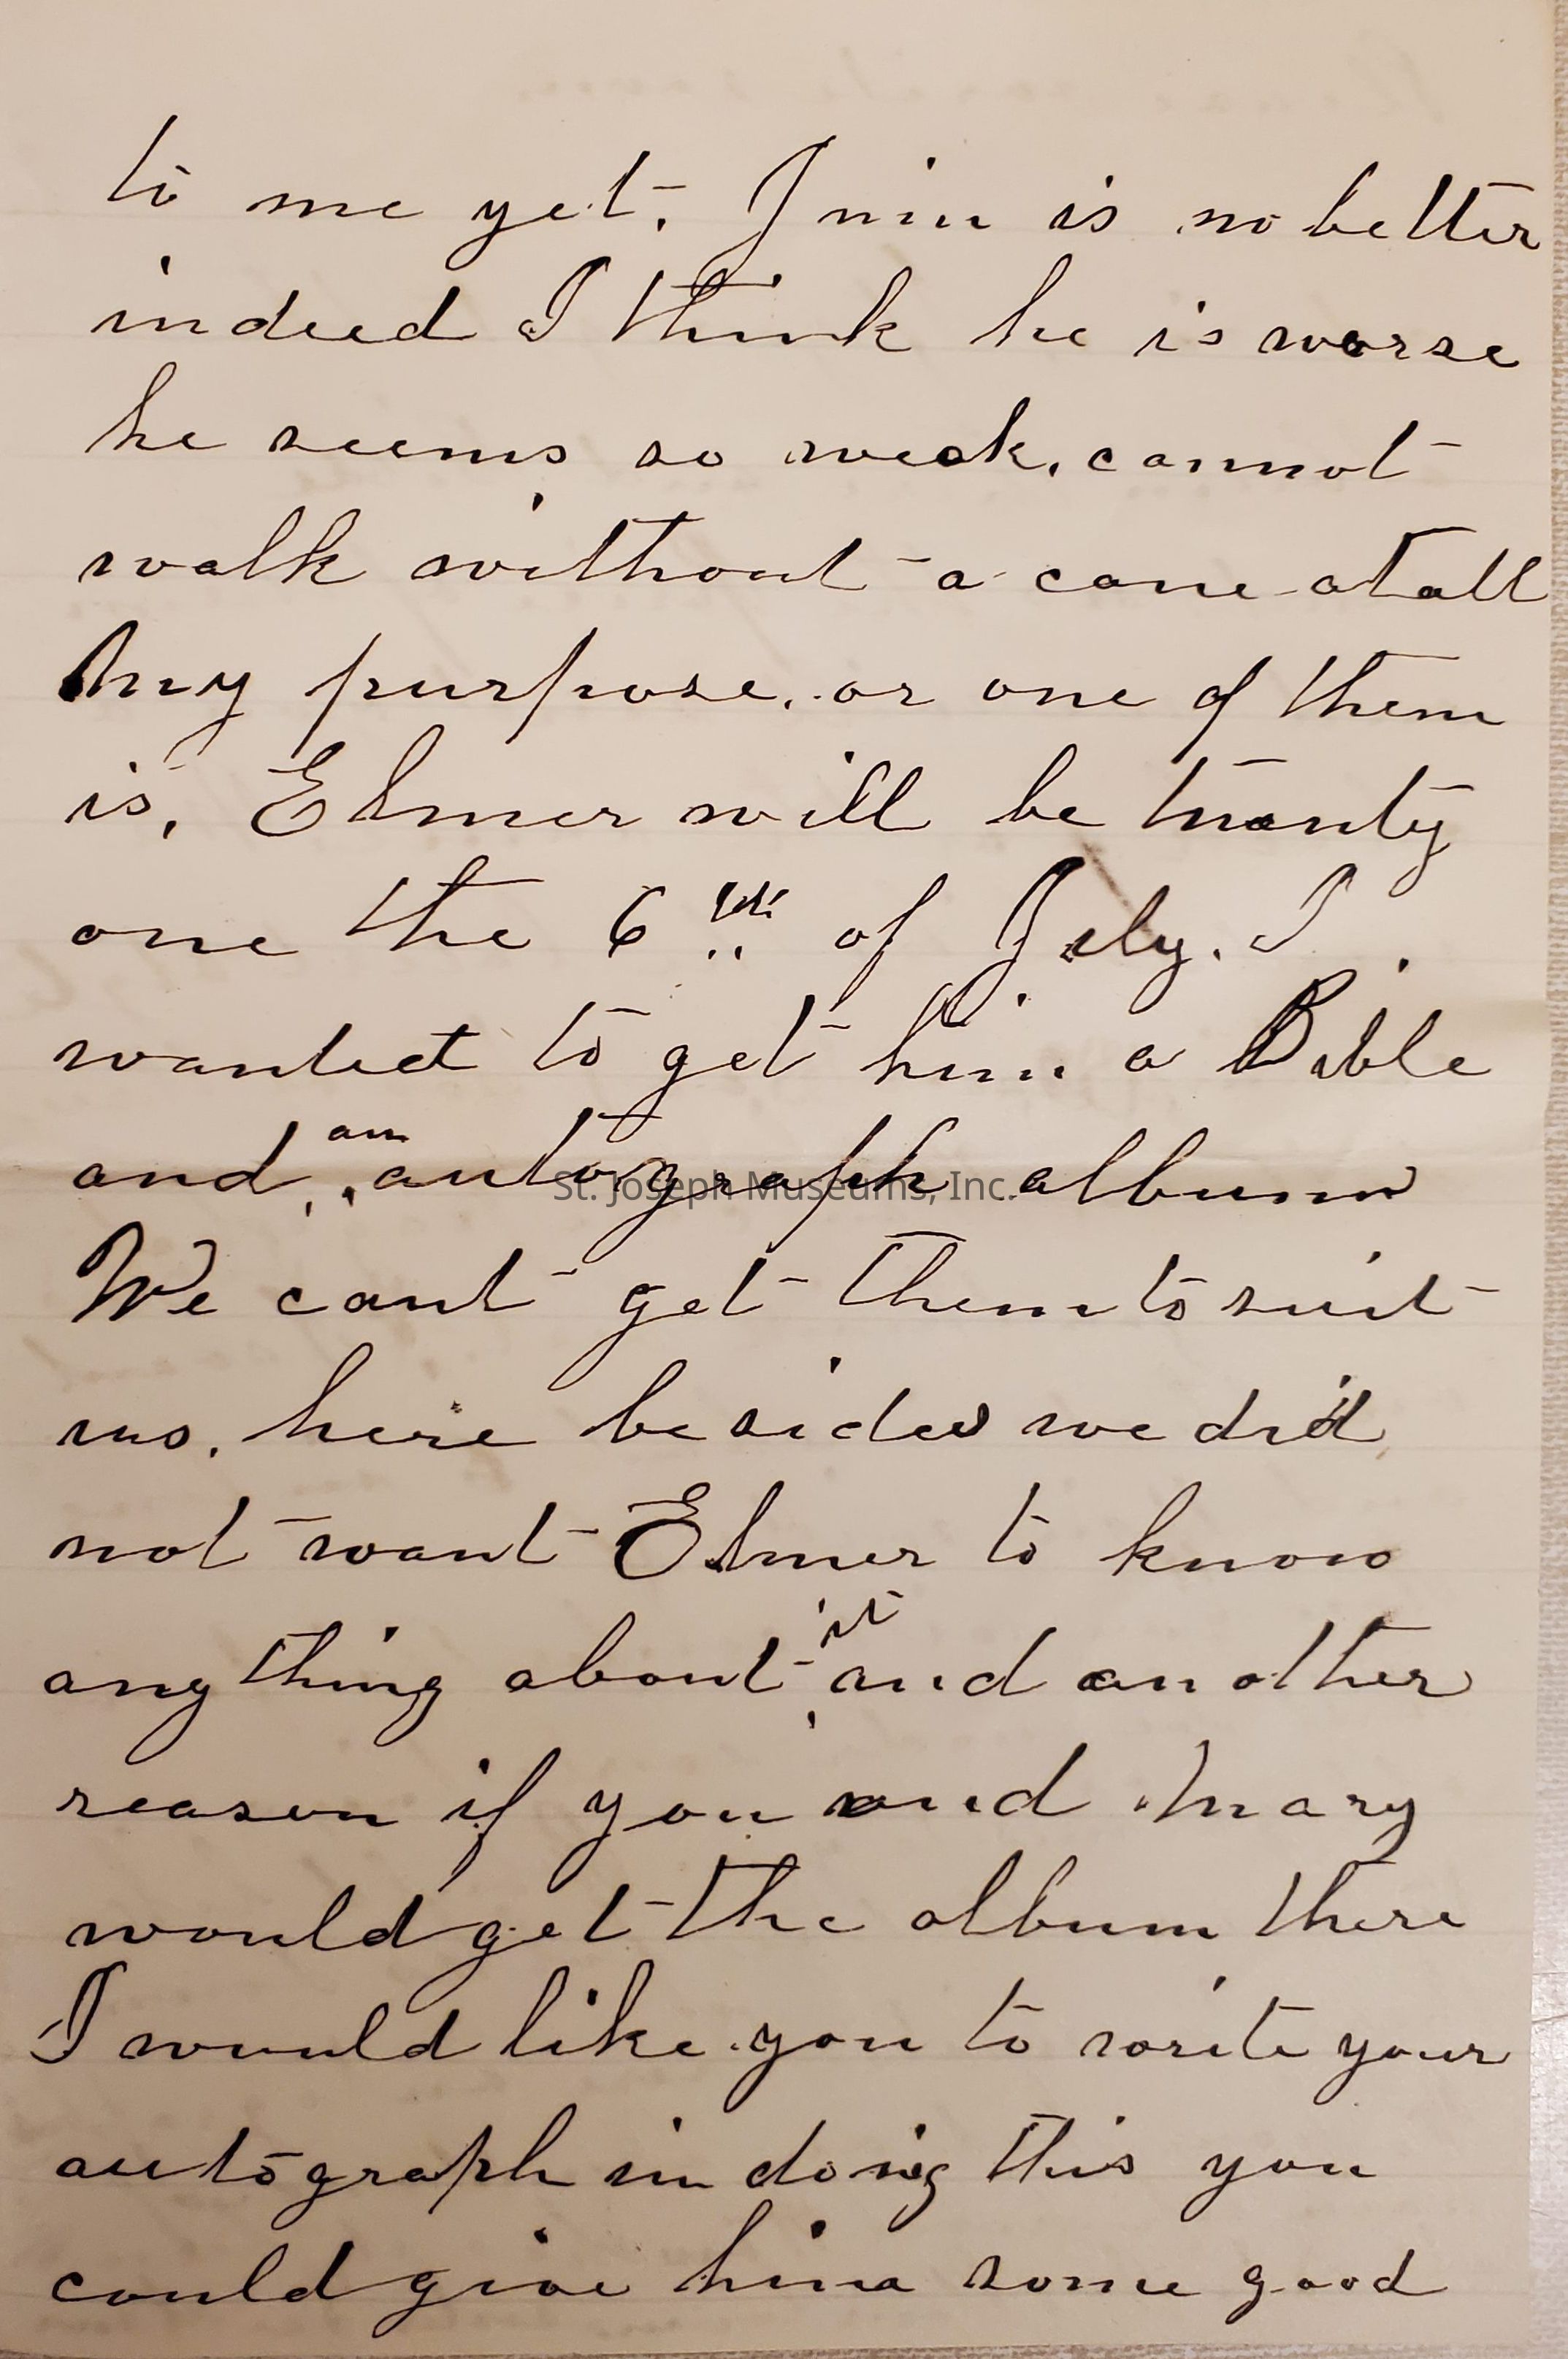 to me yet. Jim is no better
indeed I think he is worse
he seems so weak, cannot
walk without a cane at all
My purpose, or one of them
is, Elmer will be twenty
one the 6th of July. I
wanted to get him a Bible
and, an autograph album
We cant get them to suit
us, here besides we did
not want Elmer to know
anything about it and another
reason if you and Mary
would get the album there
I would like you to write your
autograph in doing this you
could give him some good
St. Joseph Museums, Inc.